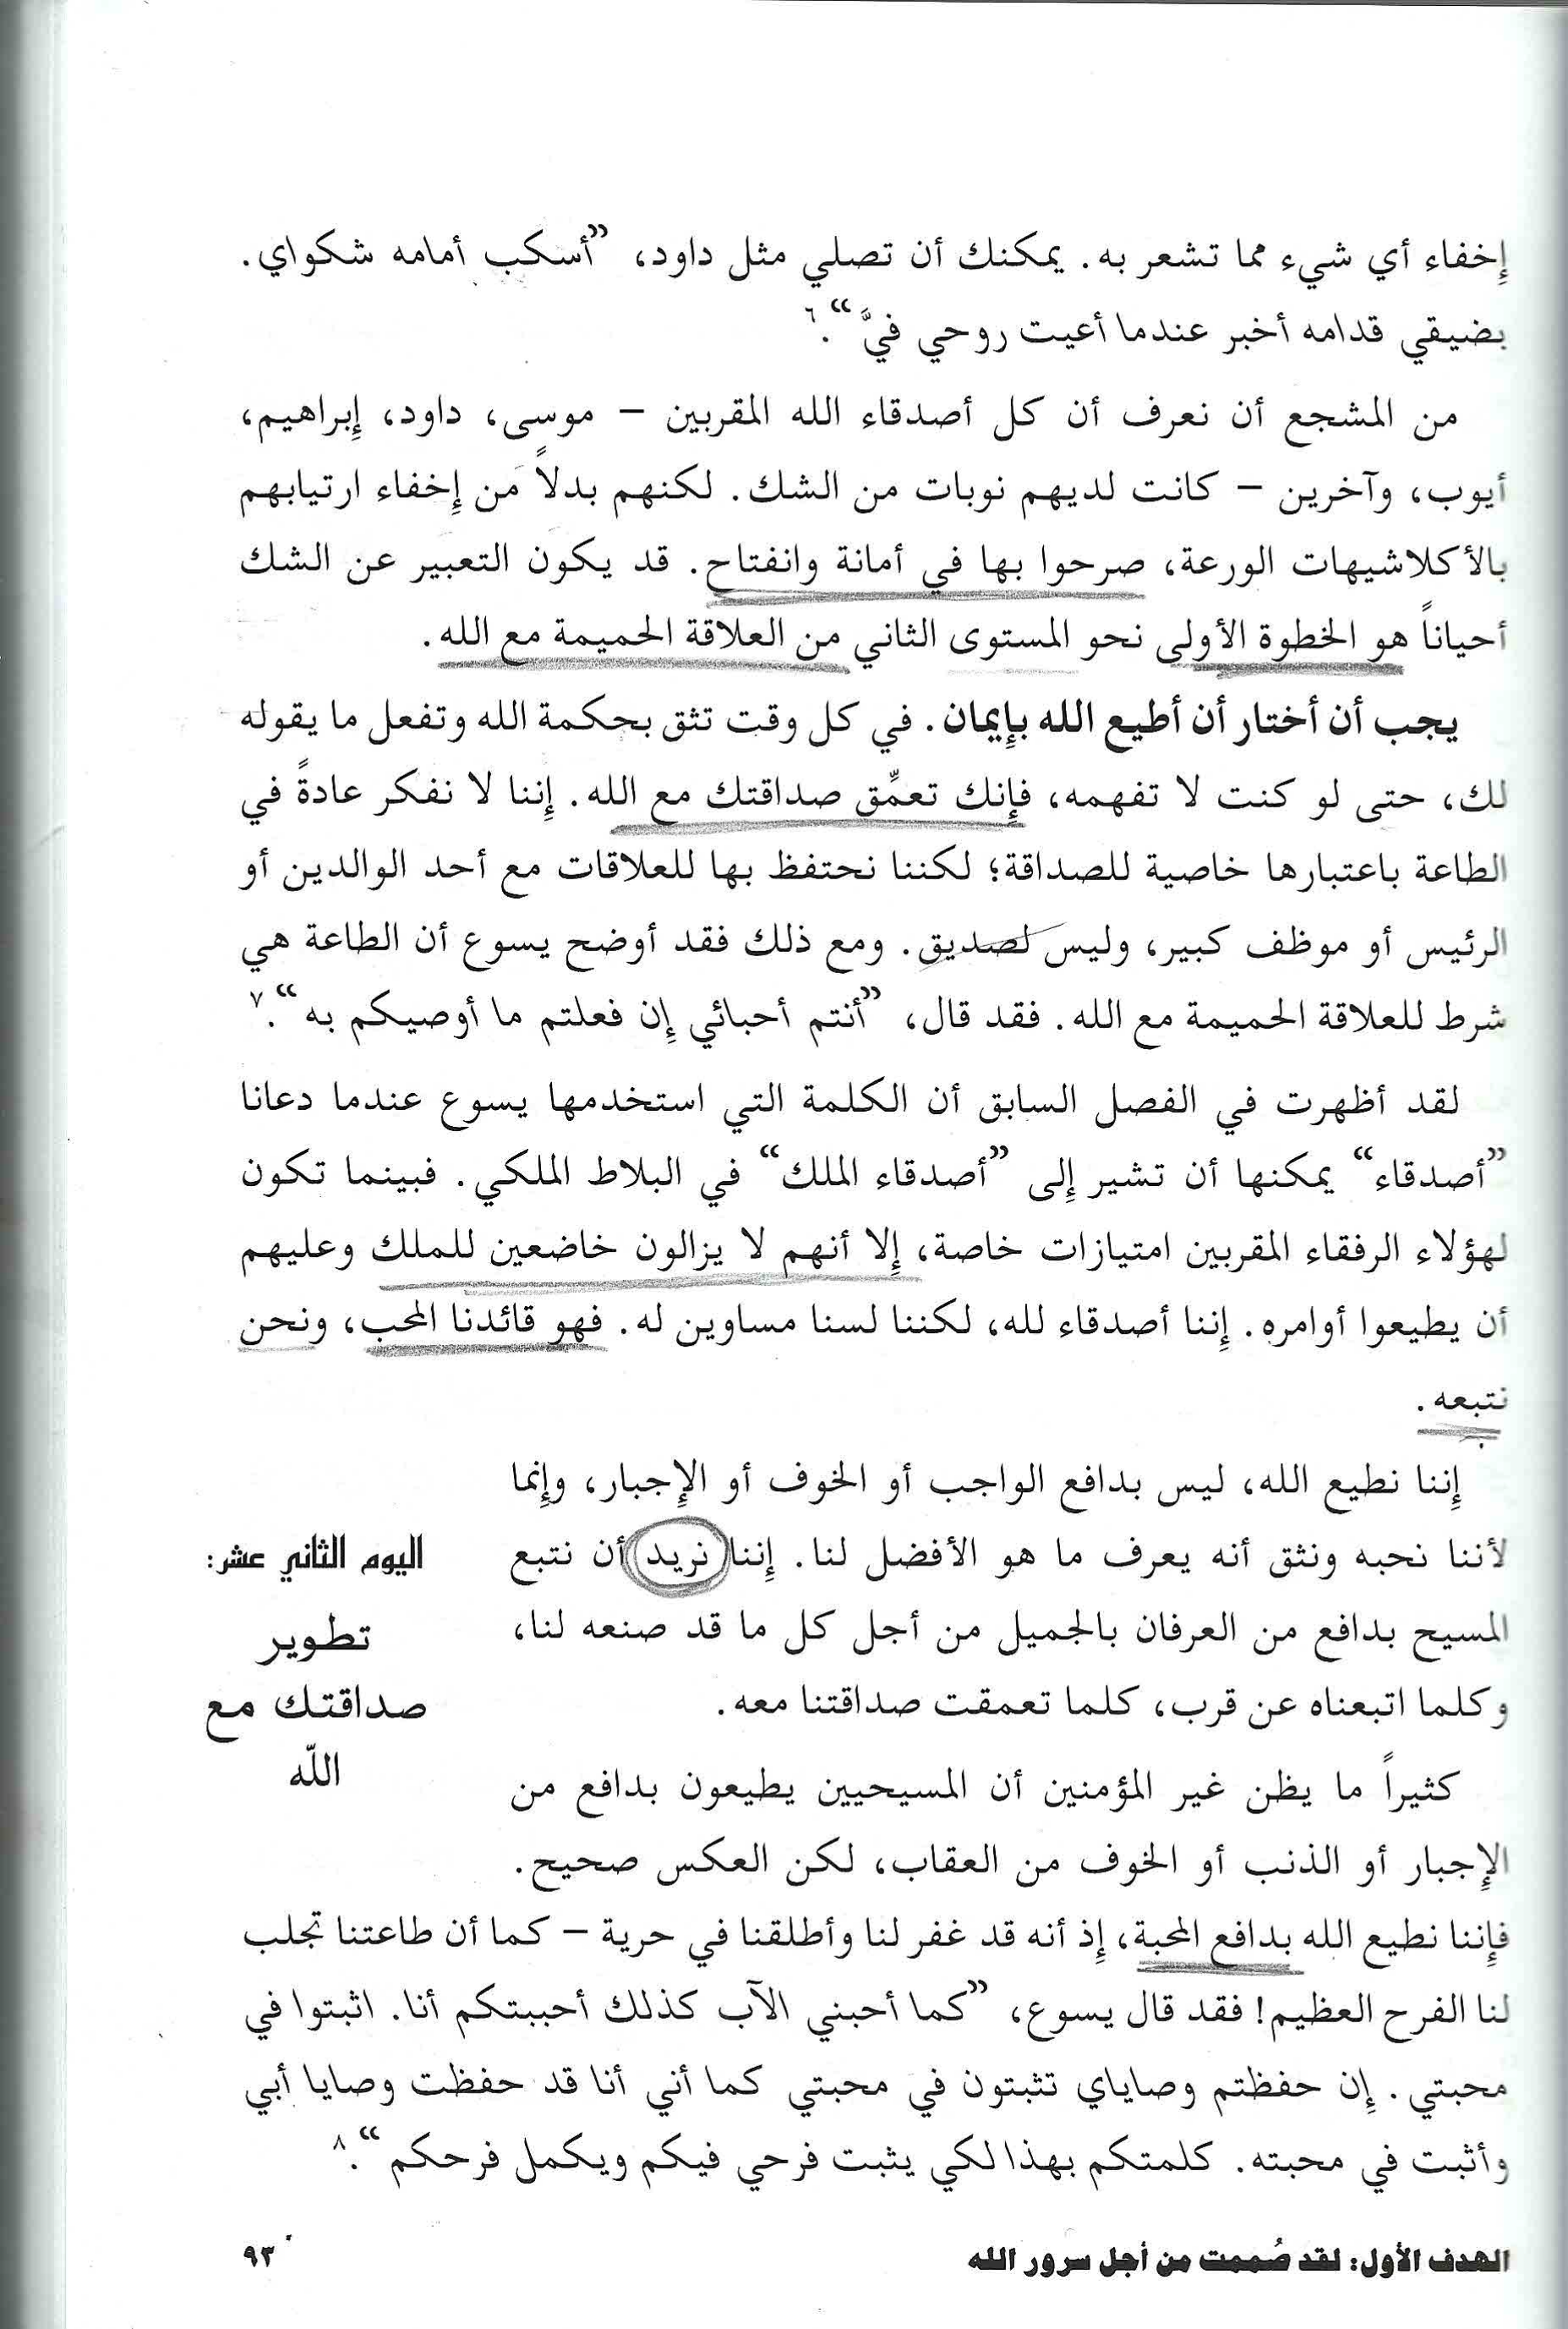 إخفاء أي شيء مما تشعر به. يمكنك أن تصلي مثل داود، ”أسكب أمامه شكواي.
بضيقي قدامه أخبر عندما أعيت روحي فيَّ“.٦
من المشجع أن نعرف أن كل أصدقاء الله المقربين – موسى، داود، إبراهيم،
أيوب، وآخرين – كانت لديهم نوبات من الشك. لكنهم بدلاً من إخفاء ارتيابهم
بالأكلاشيهات الورعة، صرحوا بها في أمانة وانفتاح. قد يكون التعبير عن الشك
أحياناً هو الخطوة الأولى نحو المستوى الثاني من العلاقة الحميمة مع الله.
يجب أن أختار أن أطيع الله بإيمان. في كل وقت تثق بحكمة الله وتفعل ما يقوله
لك، حتى لو كنت لا تفهمه، فإنك تعمِّق صداقتك مع الله. إننا لا نفكر عادةً في
الطاعة باعتبارها خاصية للصداقة؛ لكننا نحتفظ بها للعلاقات مع أحد الوالدين أو
الرئيس أو موظف كبير، وليس لصديق. ومع ذلك فقد أوضح يسوع أن الطاعة هي
شرط للعلاقة الحميمة مع الله. فقد قال، ”أنتم أحبائي إن فعلتم ما أوصيكم به“.٧
لقد أظهرت في الفصل السابق أن الكلمة التي استخدمها يسوع عندما دعانا
”أصدقاء“ يمكنها أن تشير إلى ”أصدقاء الملك“ في البلاط الملكي. فبينما تكون
لهؤلاء الرفقاء المقربين امتيازات خاصة، إلا أنهم لا يزالون خاضعين للملك وعليهم
أن يطيعوا أوامره. إننا أصدقاء لله، لكننا لسنا مساوين له. فهو قائدنا المحب، ونحن
نتبعه.
إننا نطيع الله، ليس بدافع الواجب أو الخوف أو الإجبار، وإنما
لأننا نحبه ونثق أنه يعرف ما هو الأفضل لنا. إننا نريد أن نتبع
المسيح بدافع من العرفان بالجميل من أجل كل ما قد صنعه لنا،
وكلما اتبعناه عن قرب، كلما تعمقت صداقتنا معه.
اليوم الثاني عشر:
تطوير
صداقتك مع
الله
كثيراً ما يظن غير المؤمنين أن المسيحيين يطيعون بدافع من
الإجبار أو الذنب أو الخوف من العقاب، لكن العكس صحيح.
فإننا نطيع الله بدافع المحبة، إذ أنه قد غفر لنا وأطلقنا في حرية – كما أن طاعتنا تجلب
لنا الفرح العظيم! فقد قال يسوع، ”كما أحبني الآب كذلك أحببتكم أنا. اثبتوا في
محبتي. إن حفظتم وصاياي تثبتون في محبتي كما أني أنا قد حفظت وصايا أبي
وأثبت في محبته. كلمتكم بهذا لكي يثبت فرحي فيكم ويكمل فرحكم“.٨
الهدف الأول: لقد صُممت من أجل سرور الله
٩٣